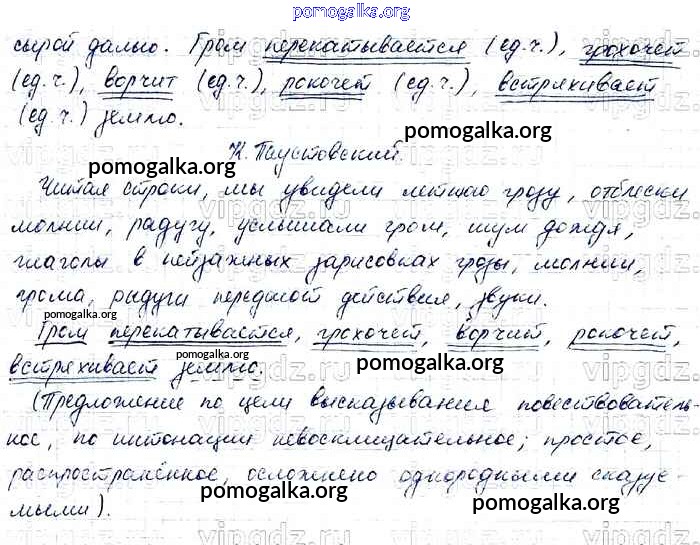 pomogalka.org
сырой далью. Гром перекатывается (ед.ч.), грохочет
(ед.ч.), ворчит (ед.ч.), рокочет (ед.ч.), встряхивает
(ед.ч.) землю.
pomogalka.org
К. Паустовский.
pomogalka.org
Читая строки, мы увидели летнюю грозу, отблески
молнии, радугу, услышали гром, шум дождя,
глаголы в пейзажных зарисовках грозы, молнии,
грома, радуги передают действия, звуки.
pomogalka.org
Гром перекатывается, грохочет, ворчит, рокочет,
встряхивает землю.
pomogalka.org
pomogalka.org
(Предложение по цели высказывания повествователь-
ное, по интонации невосклицательное; простое,
распространённое, осложнено однородными сказуе-
мыми).
pomogalka.org
pomogalka.org